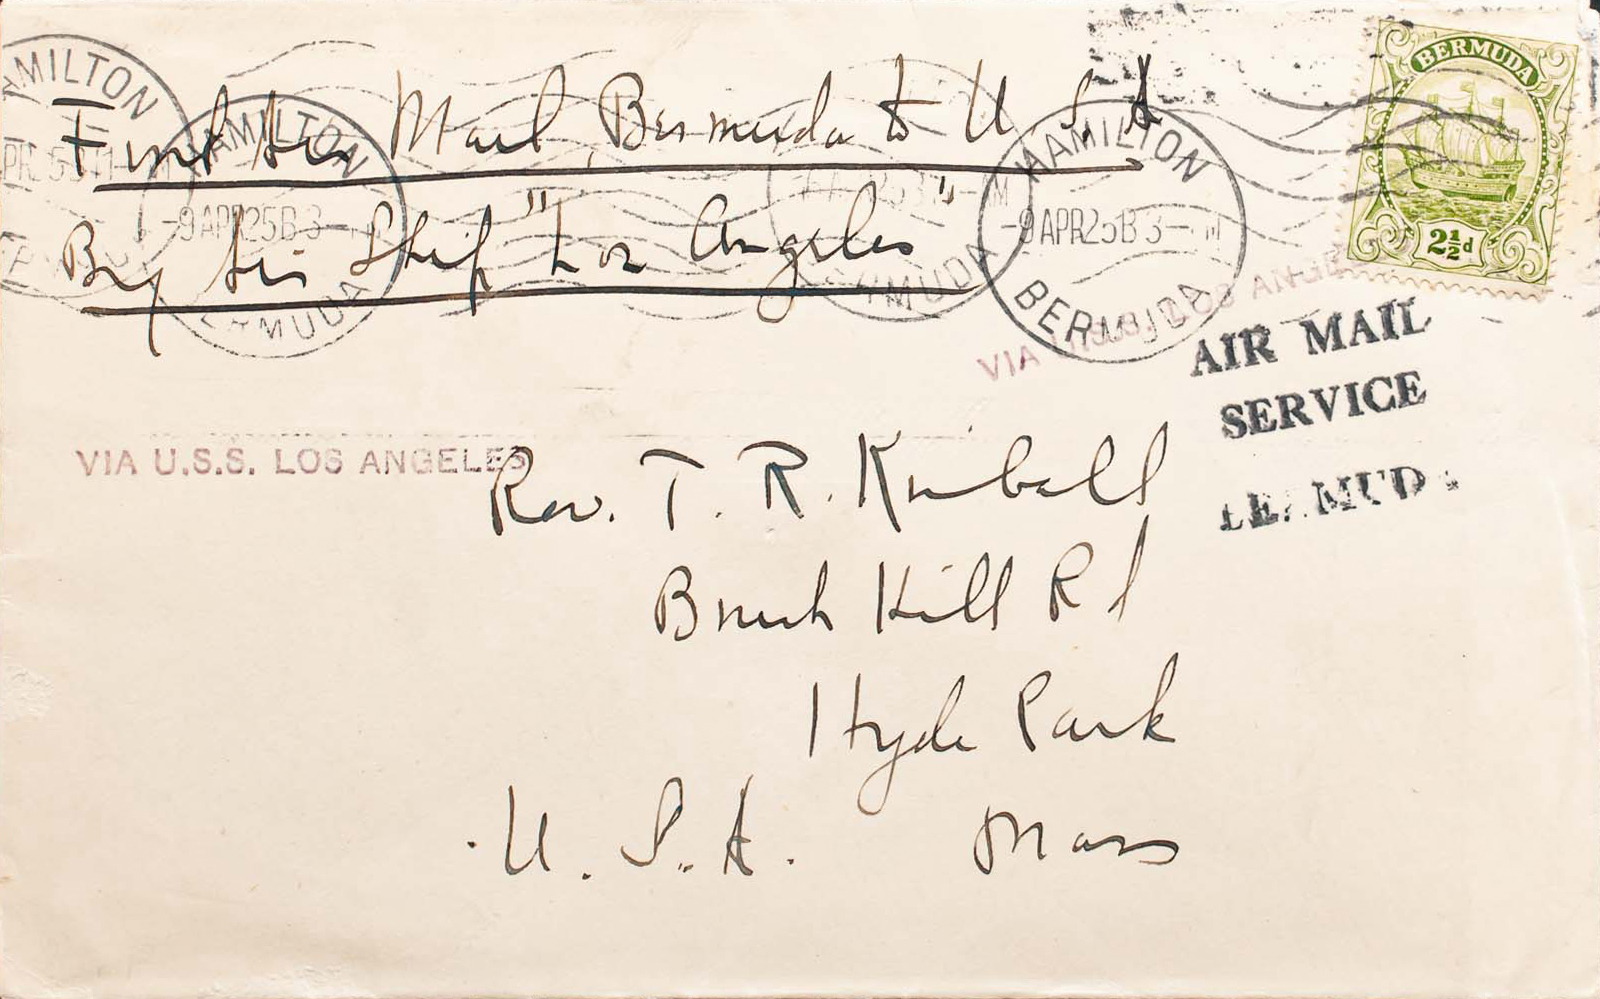 First Air Mail, Bermuda to U.S.A
By Air Ship "Los Angeles"
BERMUDA
2½d
HAMILTON
BERMUDA
-9 APR 25 B 3-
HAMILTON
BERMUDA
-9 APR 25 B 3-
VIA U.S.S. LOS ANGELES
AIR MAIL
SERVICE
BERMUDA
VIA U.S.S. LOS ANGELES
Rev. T. R. Kimball
Brush Hill Rd
Hyde Park
U.S.A. Mass